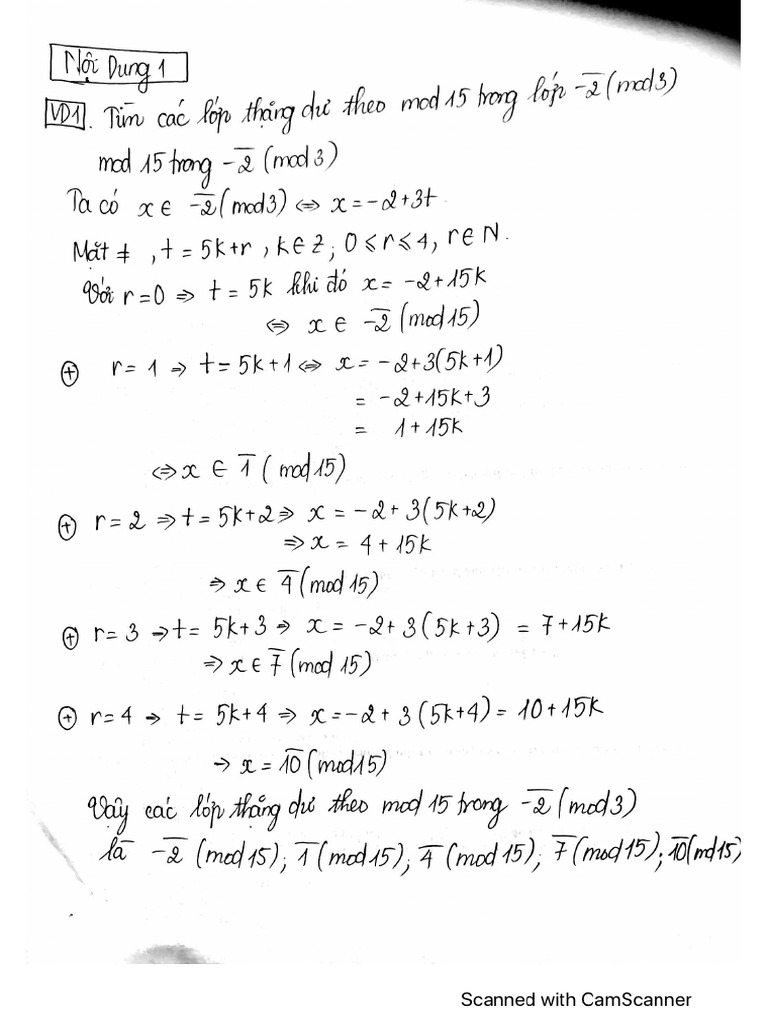 Nội Dung 1
VD1. Tìm các lớp thặng dư theo mod 15 trong lớp -2̅ (mod 3)
mod 15 trong -2̅ (mod 3)
Ta có x ∈ -2̅ (mod 3) ⇔ x = -2 + 3t.
Mặt ≠, t = 5k+r, k ∈ Z; 0 ≤ r ≤ 4, r ∈ N.
Với r = 0 ⇒ t = 5k khi đó x = -2 + 15k
⇔ x ∈ -2̅ (mod 15)
⊕ r = 1 ⇒ t = 5k + 1 ⇔ x = -2 + 3(5k + 1)
= -2 + 15k + 3
= 1 + 15k
⇔ x ∈ 1̅ (mod 15)
⊕ r = 2 ⇒ t = 5k + 2 ⇒ x = -2 + 3(5k + 2)
⇒ x = 4 + 15k
⇒ x ∈ 4̅ (mod 15)
⊕ r = 3 → t = 5k + 3 ⇒ x = -2 + 3(5k + 3) = 7 + 15k
⇒ x ∈ 7̅ (mod 15)
⊕ r = 4 → t = 5k + 4 ⇒ x = -2 + 3(5k + 4) = 10 + 15k
→ x = 1̅0̅ (mod 15)
Vậy các lớp thặng dư theo mod 15 trong -2̅ (mod 3)
là -2̅ (mod 15); 1̅ (mod 15); 4̅ (mod 15); 7̅ (mod 15); 1̅0̅ (md 15)
Scanned with CamScanner